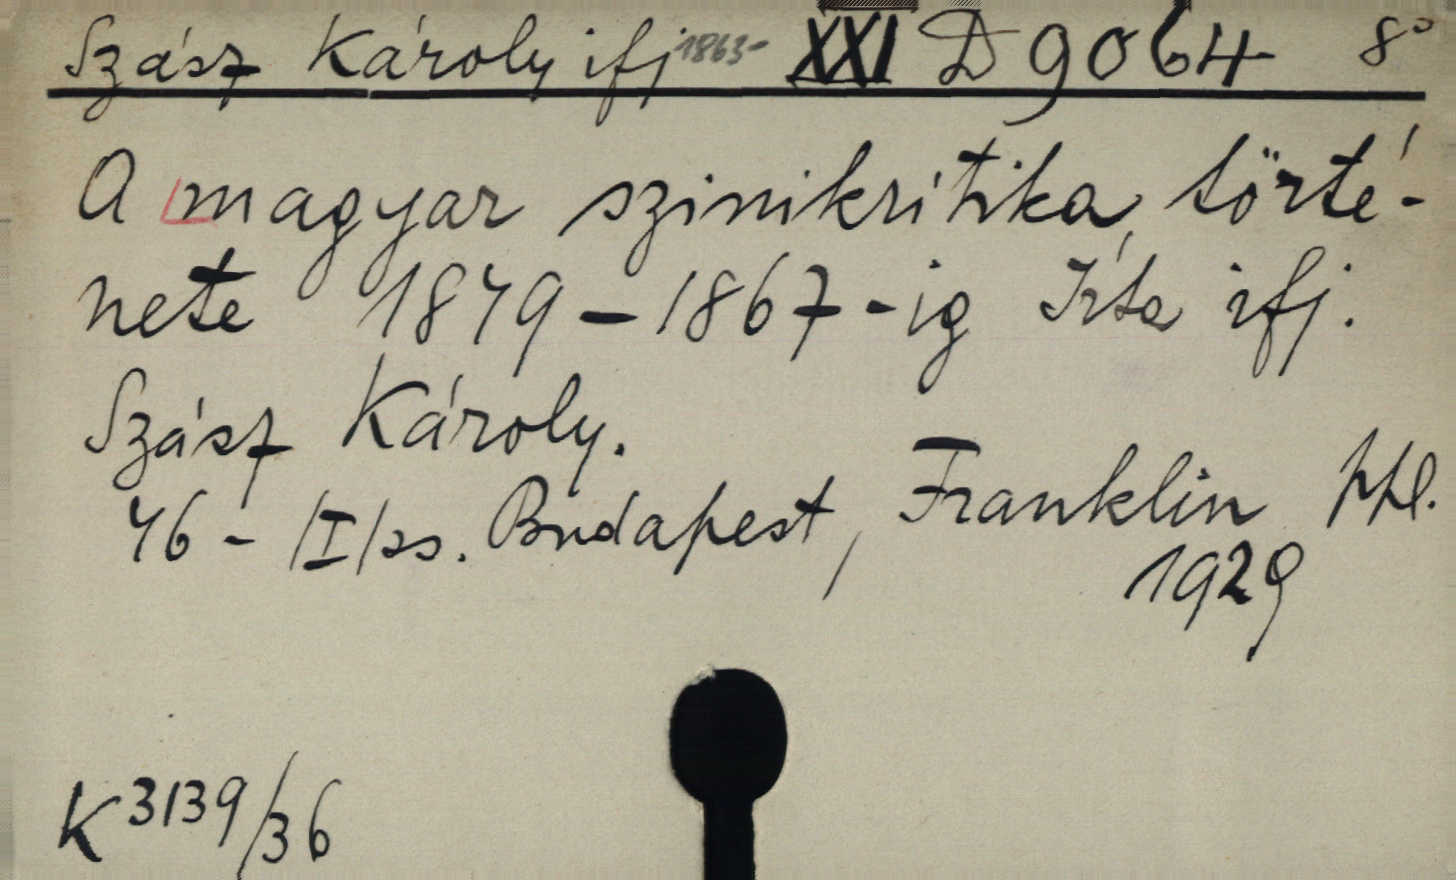 Szász Károly ifj 1863- XXI D 9064 8°
A magyar szinikritika törté-
nete 1849-1867-ig Írta ifj.
Szász Károly.
46 - /I/ss. Budapest, Franklin
1929
K 3139/36